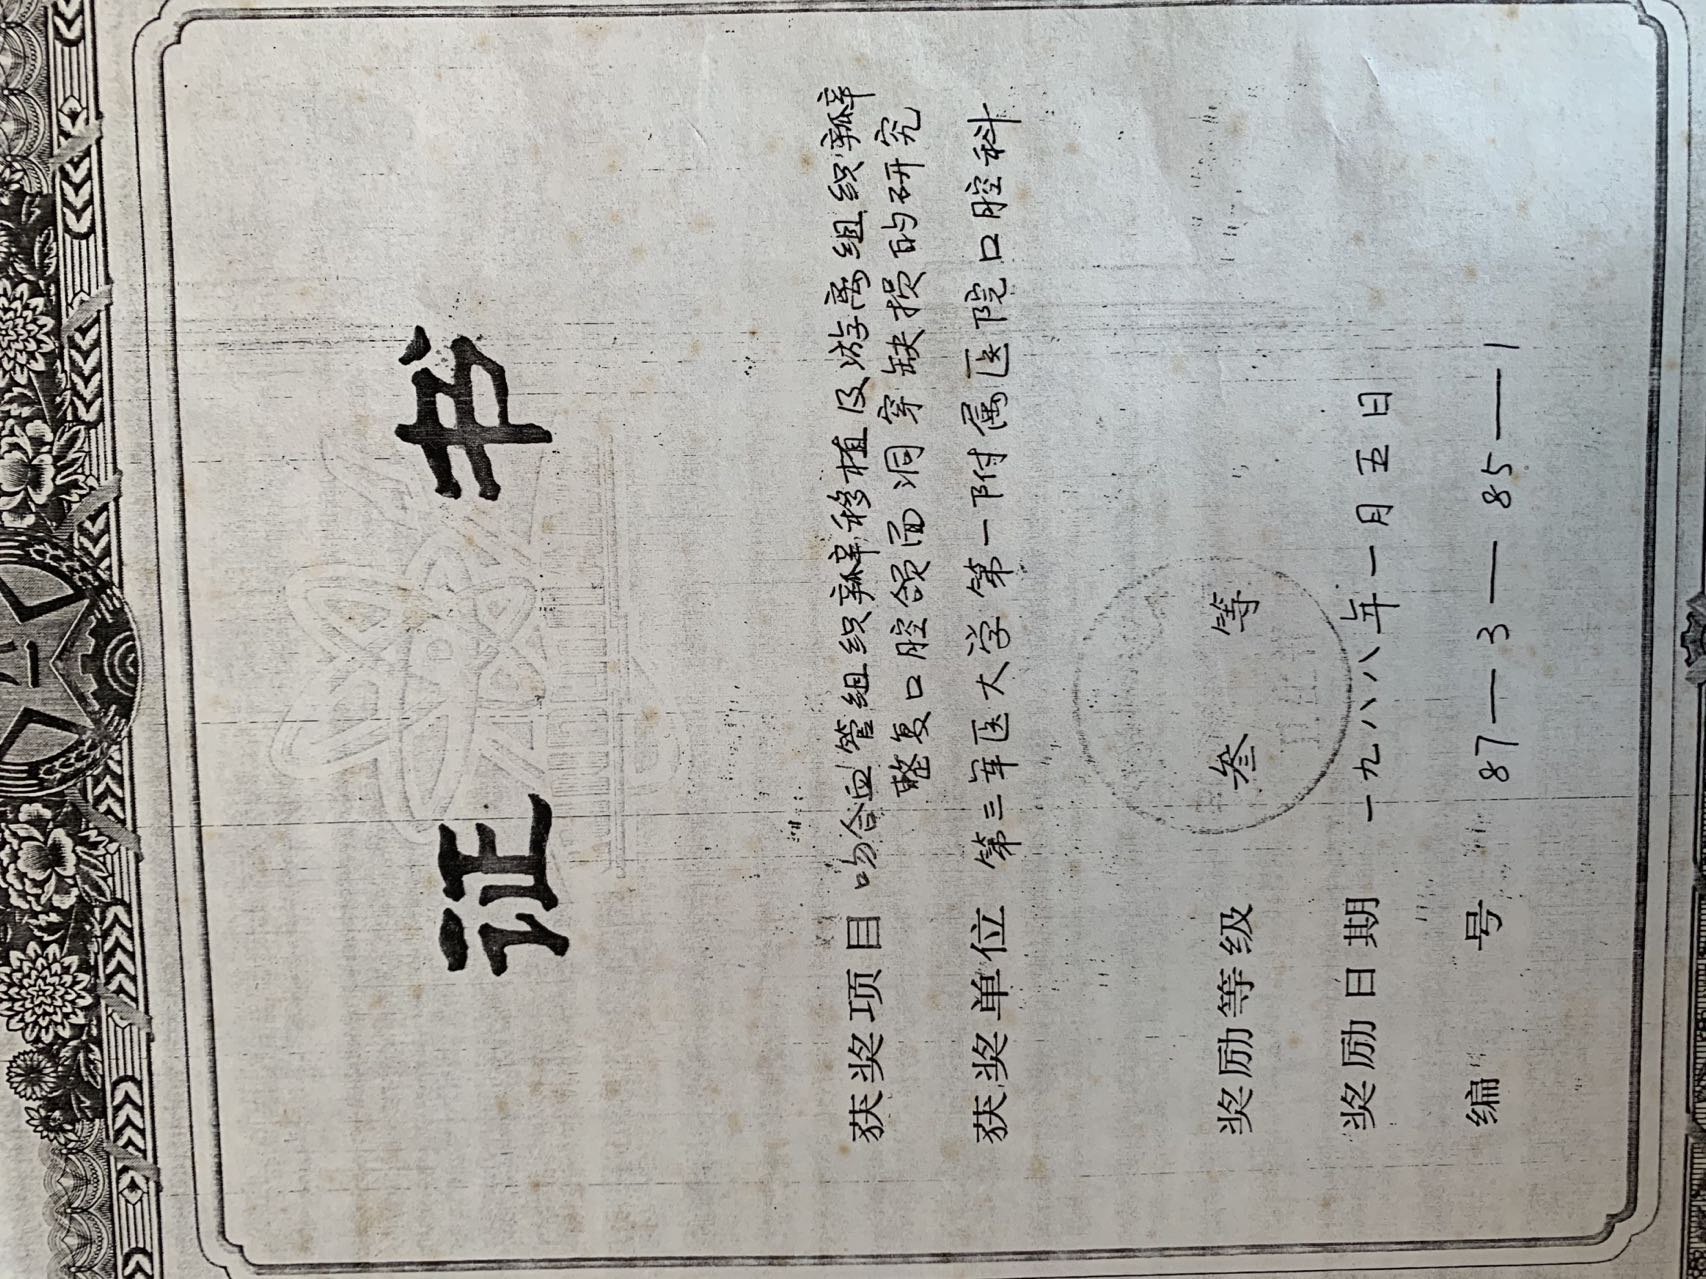 证 书
获奖项目 吻合血管组织瓣移植及游离组织瓣
整复口腔颌面洞穿缺损的研究
获奖单位 第三军医大学第一附属医院口腔科
奖励等级 叁 等
奖励日期 一九八八年一月五日
编 号 87—3—85—1